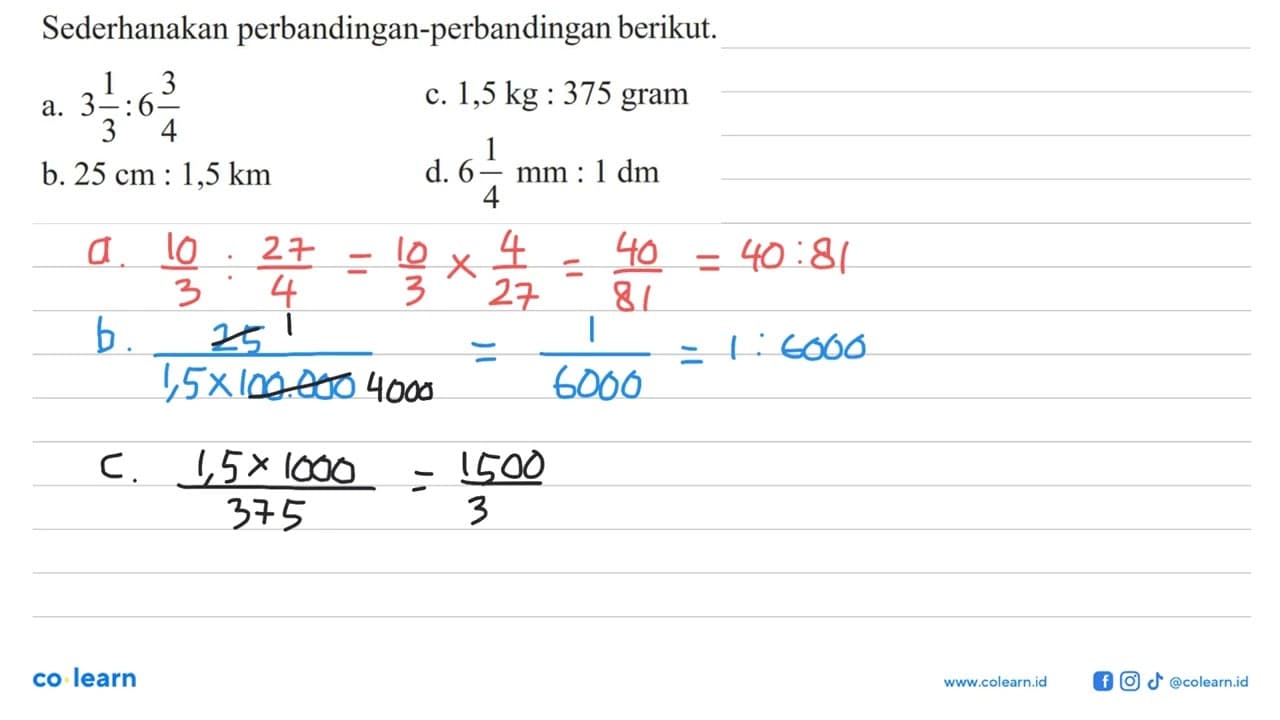 Sederhanakan perbandingan-perbandingan berikut.
a. 3 1/3 : 6 3/4
c. 1,5 kg : 375 gram
b. 25 cm : 1,5 km
d. 6 1/4 mm : 1 dm
a. 10/3 : 27/4 = 10/3 × 4/27 = 40/81 = 40 : 81
b. 25 1 / 1,5 × 100.000 4000 = 1/6000 = 1 : 6000
c. 1,5 × 1000 / 375 = 1500 / 3
co learn
www.colearn.id
@colearn.id